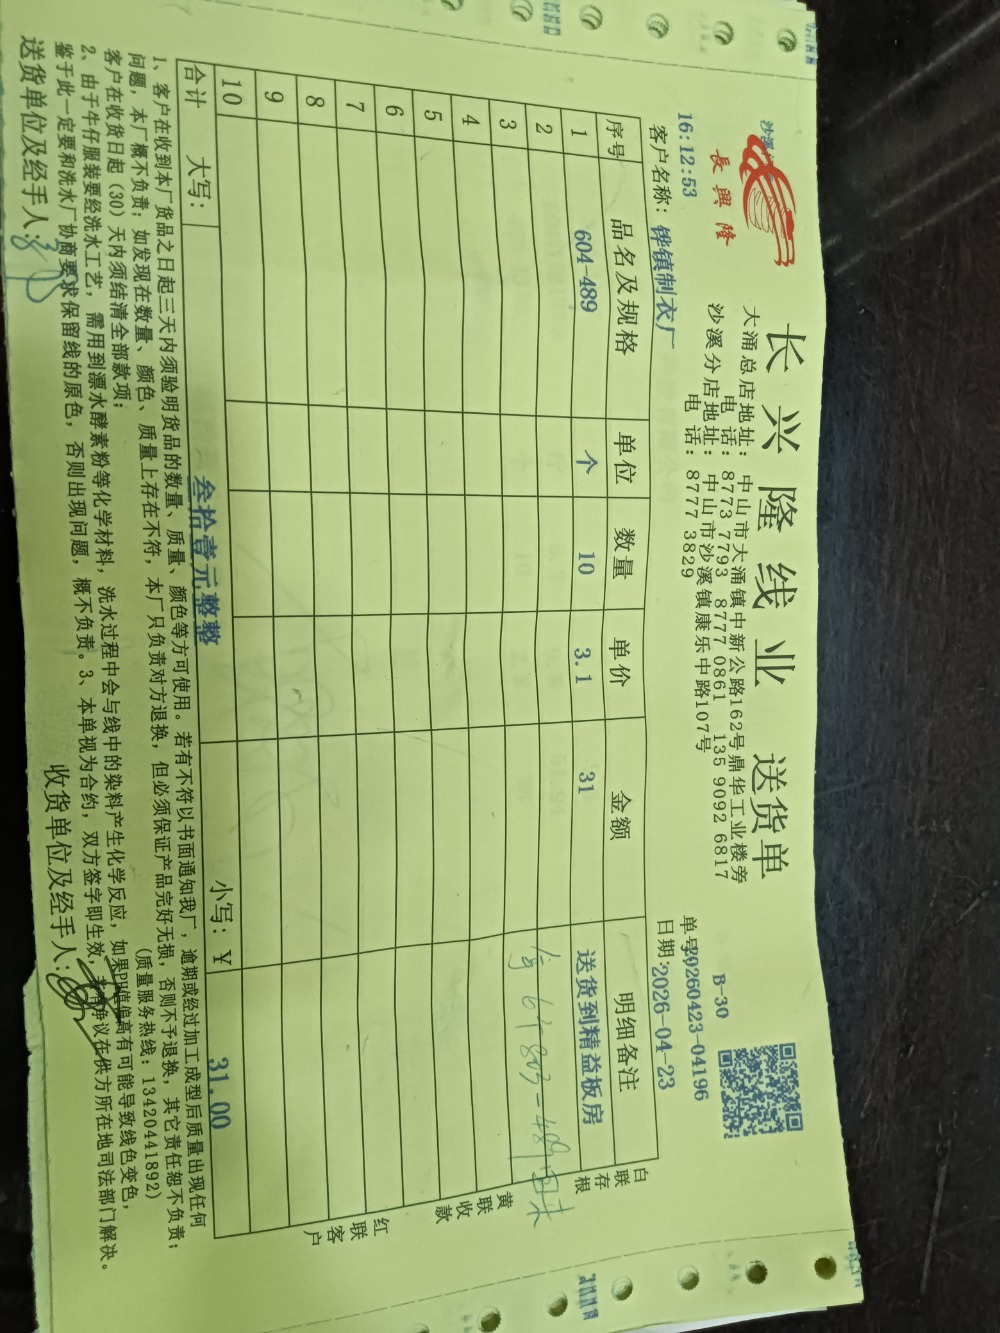 長興隆
长兴隆线业 送货单
B-30
大涌总店地址：中山市大涌镇中新公路162号鼎华工业楼旁
电话：8773 7793 8777 0861 135 9092 6817
沙溪分店地址：中山市沙溪镇康乐中路107号
电话：8777 3829
单号：20260423-04196
16:12:53
日期：2026-04-23
客户名称：铧镇制衣厂
序号 品名及规格 单位 数量 单价 金额 明细备注
1 604-489 个 10 3.1 31 送货到精益板房
2
3
4
5
6
7
8
9
10
合计 大写： 叁拾壹元整整 小写：￥ 31.00
白联存根
黄联收款
红联客户
1、客户在收到本厂货品之日起三天内须验明货品的数量、质量、颜色等方可使用。若有不符以书面通知我厂，逾期或经过加工成型后质量出现任何
问题，本厂概不负责；如发现在数量、颜色、质量上存在不符，本厂只负责对方退换，但必须保证产品完好无损，否则不予退换，其它责任恕不负责；
客户在收货日起（30）天内须结清全部款项；（质量服务热线：13420441892）
2、由于牛仔服装要经洗水工艺，需用到漂水酵素粉等化学材料，洗水过程中会与线中的染料产生化学反应，如果PH值偏高有可能导致线色变色，
鉴于此一定要和洗水厂协商要求保留线的原色，否则出现问题，概不负责。3、本单视为合约，双方签字即生效，若有争议在供方所在地司法部门解决。
送货单位及经手人： 收货单位及经手人：